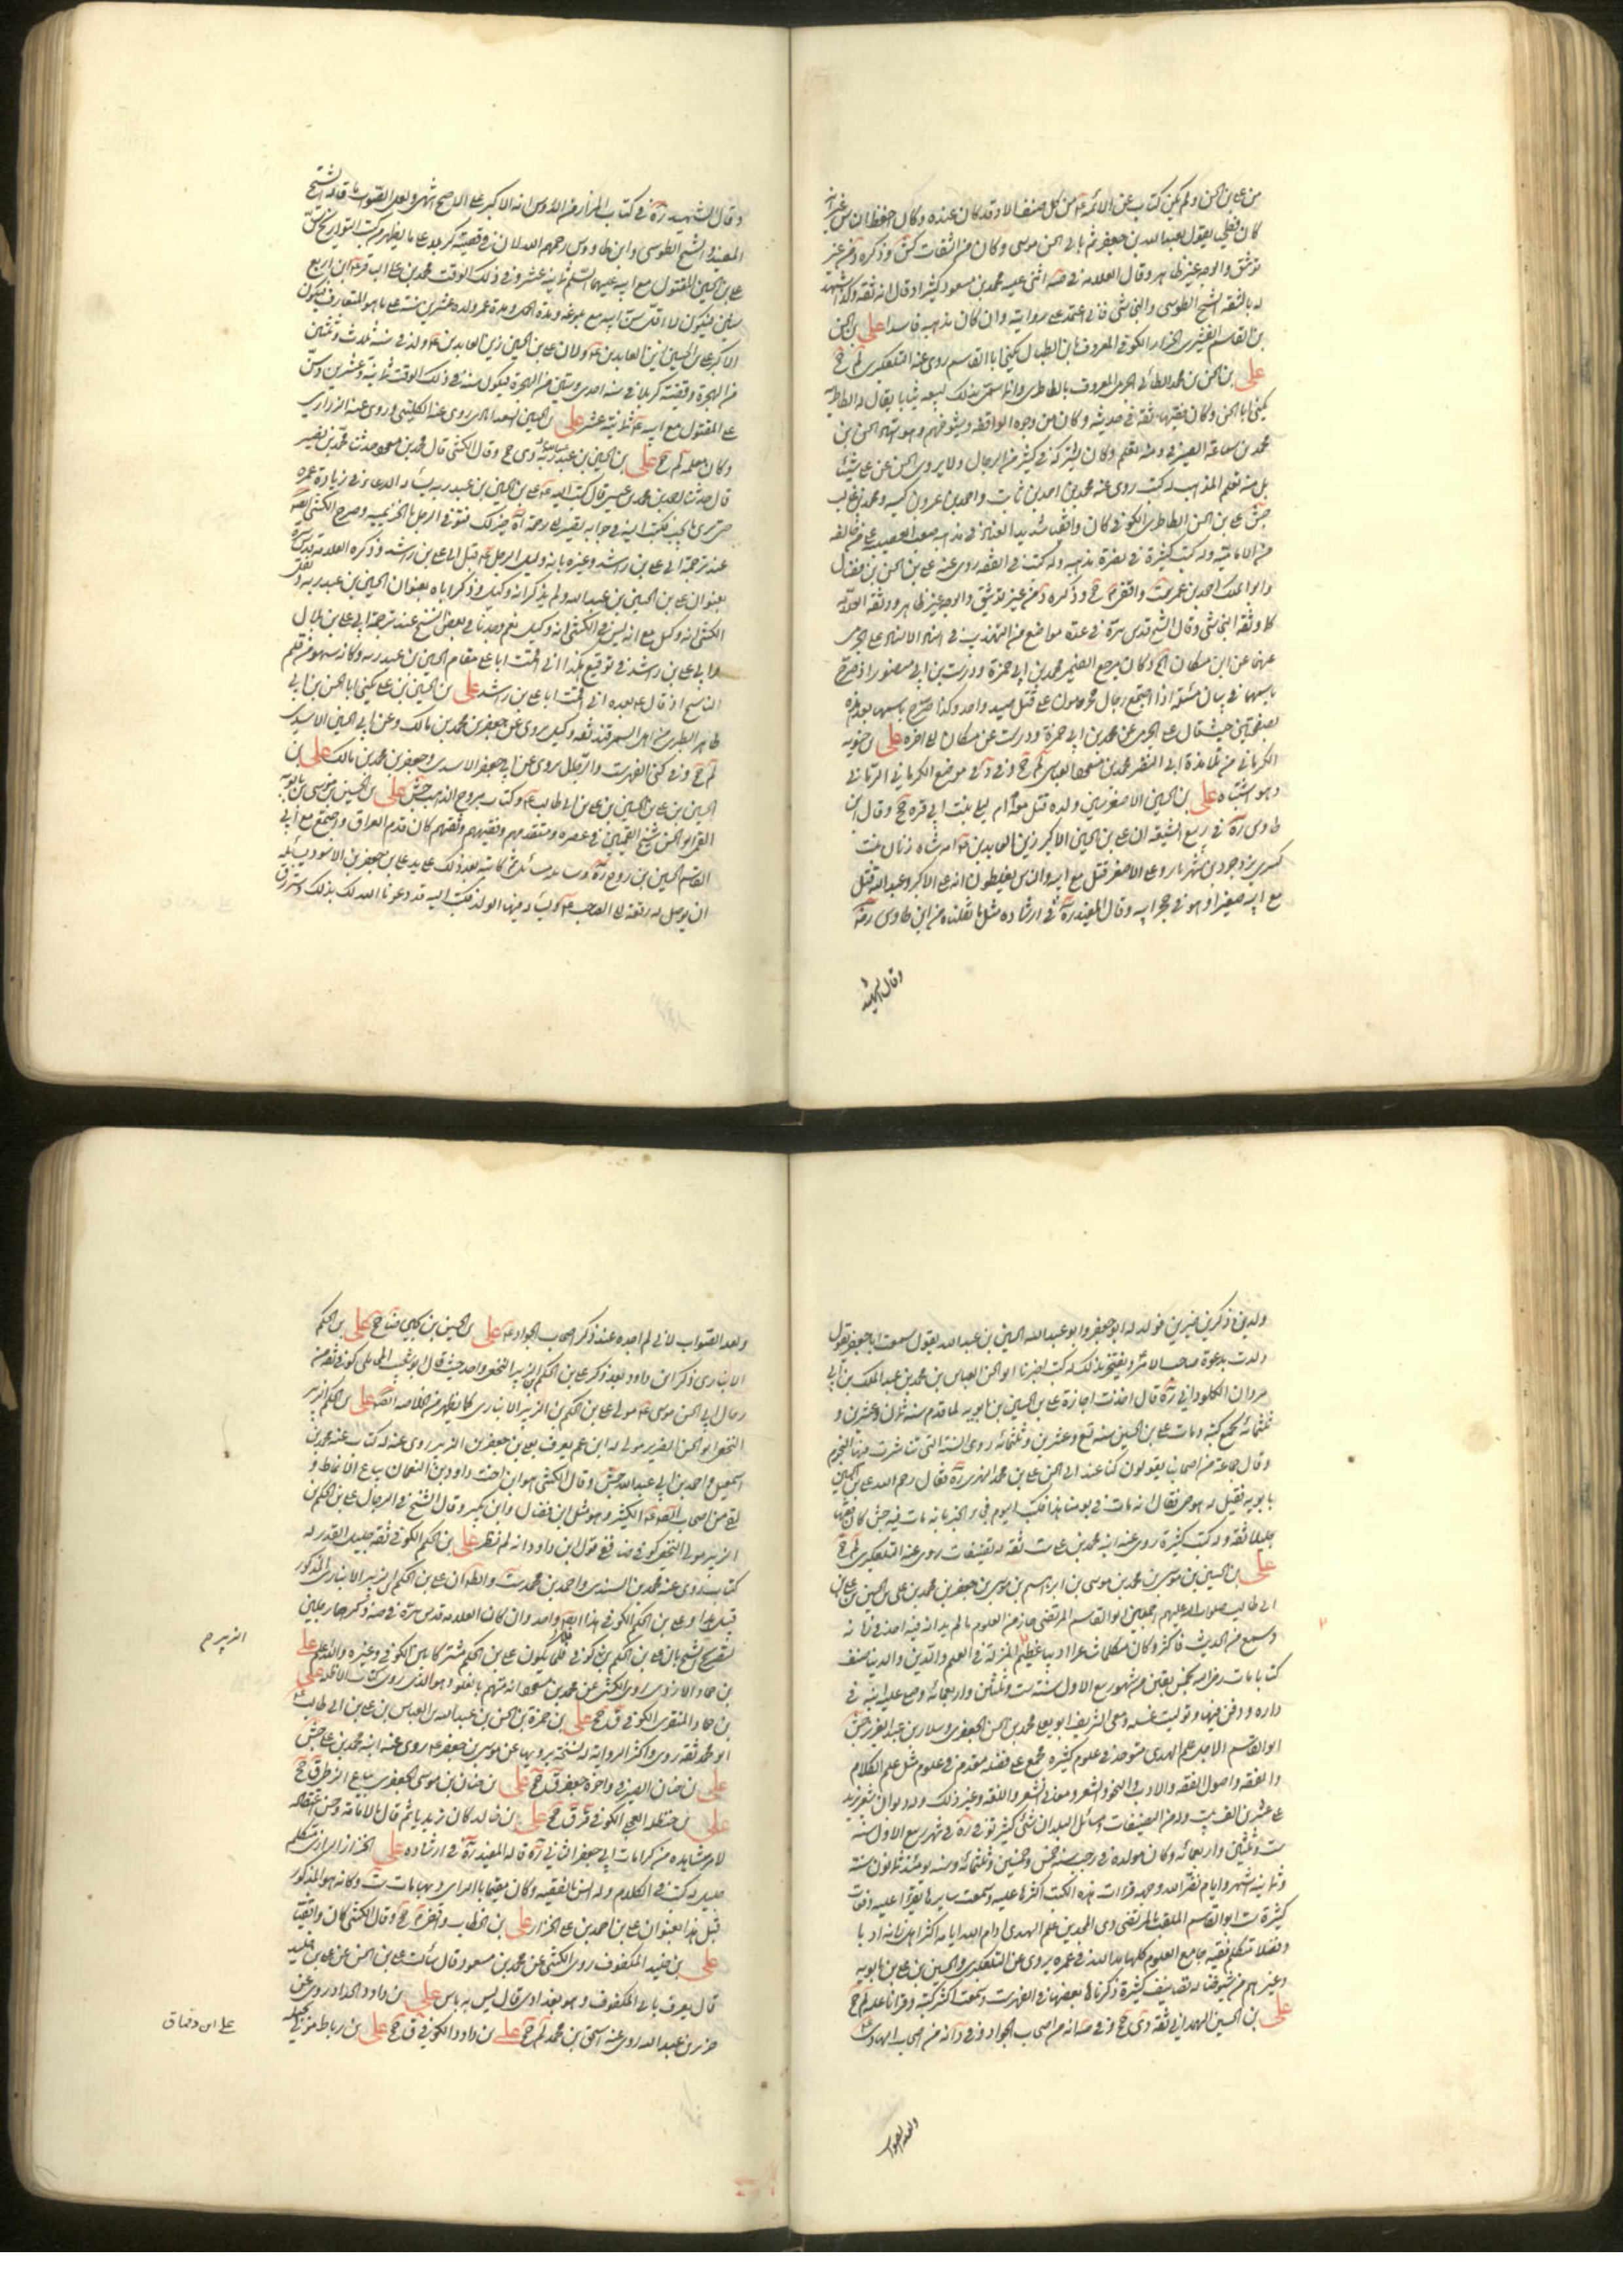 من علي بن الحسن ولم يكن كتاب عن الائمة ع من كل صنف الا وقد كان عنده وكان احفظ الناس غير انه
كان فطحي يقول بعبد الله بن جعفر ثم بابي الحسن موسى وكان من الثقات كش وذكره د في غير
توثيق والوجه غير ظاهر وقال العلامة في صه اثنى عليه محمد بن مسعود كثيرا وقال انه ثقة وكذا شهد
له بالثقة الشيخ الطوسي والنجاشي فانا اعتمد على روايته وان كان مذهبه فاسدا علي بن الحسن
بن القاسم القشيري الخزاز الكوفي المعروف بابن الطبال يكنى ابا القاسم روى عنه التلعكبري لم جخ
علي بن الحسن بن محمد الطائي الجرمي المعروف بالطاطري وانما سمي بذلك لبيعه ثيابا يقال لها الطاطرية
يكنى ابا الحسن وكان فقيها ثقة في حديثه وكان من وجوه الواقفة وشيوخهم وهو استاد الحسن بن
محمد بن سماعة الصيرفي ومنه تعلم وكان يشركه في كثير من الرجال ولا يروي الحسن عن علي شيئا
بل منه تعلم المذهب له كتب روى عنه محمد بن احمد بن ثابت واحمد بن عمر بن كيسبه ومحمد بن غالب
جش علي بن الحسن الطاطري الكوفي كان واقفيا شديد العناد في مذهبه صعب العصبية على من خالفه
من الامامية وله كتب كثيرة في نصرة مذهبه وله كتب في الفقه روى عنه علي بن الحسن بن فضال
وابو الملك احمد بن عمر ست واقفي م جخ وذكره د في غير توثيق والوجه غير ظاهر ووثقه العلامة
كما وثقه النجاشي وقال الشيخ قدس سره في عدة مواضع من التهذيب في اثناء الاسناد علي الجرمي
عنهما عن ابن مسكان الخ وكان مرجع الضمير محمد بن ابي حمزة ودرست بن ابي منصور اذ صرح
باسمهما في بيان مسئلة اذا اجتمع رجال محرمون على قتل صيد واحد وكذا صرح باسمهما بعد هذه
بصفحتين حيث قال علي الجرمي عن محمد بن ابي حمزة ودرست عن مسكان الى اخره علي بن حسنويه
الكرماني من تلامذة ابي النضر محمد بن مسعود العياشي لم جخ وفي د في موضع الكرماني الزماني
وهو اشتباه علي بن الحسين الاصغر سين ولده قتل معه امه ليلى بنت ابي قره جخ وقال ابن
طاوس ره في ربيع الشيعة ان علي بن الحسين الاكبر زين العابدين ع امه شاه زنان بنت
كسرى يزدجرد بن شهريار وعلي الاصغر قتل مع ابيه والناس يغلطون انه علي الاكبر وعبد الله قتل
مع ابيه صغيرا وهو في حجر ابيه وقال المفيد ره في ارشاده مثل ما نقلناه من ابن طاوس ره
وقال الشهيد
وقال الشهيد ره في كتاب المزار من الدروس انه الاكبر على الاصح اشهر ولعل الصواب ما قاله الشيخ
المفيد والشيخ الطوسي وابن طاووس رحمهم الله لان في قصة كربلا على ما يظهر من كتب التواريخ سن
علي بن الحسين المقتول مع ابيه عليهما السلم ثمانية عشر وفي ذلك الوقت محمد بن علي الباقر ع ابن اربع
سنين فيكون لا اقل سن ابيه مع بلوغه ومدة الحمل ومدة عمر ولده عشرين سنة على ما هو المتعارف فيكون
الاكبر علي بن الحسين زين العابدين ع ولان علي بن الحسين زين العابدين ع ولد في سنة ثلث وثلثين
من الهجرة وقصة كربلا في سنة احدى وستين من الهجرة فيكون سنه في ذلك الوقت ثمانية وعشرين وسن
علي المقتول مع ابيه ع ثمانية عشر علي بن الحسين السعدابادي روى عنه الكليني وروى عنه الزراري
وكان معلمه لم جخ علي بن الحسين بن عبد ربه دي جخ وقال الكشي قال محمد بن مسعود حدثنا محمد بن نصير
قال حدثنا احمد بن محمد بن عيسى قال كتب اليه علي بن الحسين بن عبد ربه يسأله الدعاء في زيادة عمره
حتى يرى ما يحب فكتب اليه في جوابه تصير الى رحمة الله خير لك فتوفي الرجل بالخزيمية وصرح الكشي ايضا
عند ترجمة ابي علي بن راشد وغيره بانه وكيل الرجل ع قبل ابي علي بن راشد وذكره العلامة قدس سره
بعنوان علي بن الحسين بن عبد الله ولم يذكر انه وكيل وذكر اباه بعنوان الحسين بن عبد ربه ونقل
الكشي انه وكيل مع انه ليس في الكشي انه وكيل نعم وجدنا في بعض النسخ عند ترجمة ابي علي بن بلال
وابي علي بن راشد في توقيع هكذا اني اقمت ابا علي مقام الحسين بن عبد ربه وكانه سهو من قلم
الناسخ اذ قال ع بعده اني اقمت ابا علي بن راشد علي بن الحسين بن علي يكنى ابا الحسن بن ابي
طاهر الطبري من اهل السمرقند ثقة وكيل يروي عن جعفر بن محمد بن مالك وعن ابي الحسين الاسدي
لم جخ وفي كنى الفهرست والرجال روى عن ابي جعفر الاسدي وجعفر بن محمد بن مالك علي بن
الحسين بن علي بن الحسين بن علي بن ابي طالب ع وكتاب مروج الذهب جش علي بن الحسين بن موسى بن بابويه
القمي ابو الحسن شيخ القميين في عصره ومتقدمهم وفقيههم وثقتهم كان قدم العراق واجتمع مع ابي
القاسم الحسين بن روح ره وساله مسائل ثم كاتبه بعد ذلك على يد علي بن جعفر بن الاسود يسأله
ان يوصل له رقعة الى الصاحب ع ويسأله فيها الولد فكتب اليه قد دعونا الله لك بذلك وسترزق
ولدين ذكرين خيرين فولد له ابو جعفر وابو عبد الله الحسين بن عبد الله يقول سمعت ابا جعفر يقول
ولدت بدعوة صاحب الامر ويفتخر بذلك له كتب اخبرنا ابو الحسن العباس بن محمد بن عبد الملك بن ابي
مروان الكلوذاني ره قال اخذت اجازة علي بن الحسين بن بابويه لما قدم سنة ثمان وعشرين و
ثلثمائة بجميع كتبه ومات علي بن الحسين سنة تسع وعشرين وثلثمائة وهي السنة التي تناثرت فيها النجوم
وقال جماعة من اصحابنا يقولون كنا عند ابي الحسن علي بن محمد السمري ره فقال رحم الله علي بن الحسين
بابويه فقيل له هو حي فقال انه مات في يومنا هذا فكتب اليوم فجاء الخبر بانه مات فيه جش كان فقيها
جليلا ثقة وله كتب كثيرة روى عنه ابنه محمد بن علي ست ثقة له تصنيفات روى عنه التلعكبري لم جخ
علي بن الحسين بن موسى بن محمد بن موسى بن ابراهيم بن موسى بن جعفر بن محمد بن علي بن الحسين بن علي بن
ابي طالب صلوات الله عليهم اجمعين ابو القاسم المرتضى حاز من العلوم ما لم يدانه فيه احد في زمانه
وسمع من الحديث فاكثر وكان متكلما شاعرا اديبا عظيم المنزلة في العلم والدين والدنيا صنف
كتبا مات رضي الله لخمس بقين من شهر ربيع الاول سنة ست وثلثين واربعمائة وصلى عليه ابنه في
داره ودفن فيها وتوليت غسله ومعي الشريف ابو يعلى محمد بن الحسن الجعفري وسلار بن عبد العزيز جش
ابو القاسم الاجل علم الهدى متوحد في علوم كثيرة مجمع على فضله مقدم في علوم مثل علم الكلام
والفقه واصول الفقه والادب والنحو والشعر ومعاني الشعر واللغة وغير ذلك وله ديوان شعر يزيد
على عشرين الف بيت وله من التصنيفات ومسائل البلدان شئ كثير توفي ره في شهر ربيع الاول سنة
ست وثلثين واربعمائة وكان مولده في رجب سنة خمس وخمسين وثلثمائة وسنه يومئذ ثمانون سنة
وثمانية اشهر وايام نضر الله وجهه قرات هذه الكتب اكثرها عليه وسمعت سايرها تقرأ عليه دفعات
كثيرة ست ابو القاسم الملقب المرتضى ذي المجدين علم الهدى ادام الله ايامه اكثر اهل زمانه ادبا
وفضلا متكلم فقيه جامع العلوم كلها مد الله في عمره يروي عن التلعكبري والحسين بن علي بن بابويه
وغيرهم من شيوخنا له تصانيف كثيرة ذكرنا بعضها في الفهرست وسمعنا اكثر كتبه وقرأنا عليه لم جخ
علي بن الحسين الهمداني ثقة دي جخ وفي صه انه من اصحاب الجواد وفي د انه من اصحاب الهادي ع
ولعل الصواب
ولعل الصواب لاني لم اجده عند ذكر اصحاب الجواد ع علي بن الحسين بن يحيى ضا جخ علي بن الحكم
الانباري ذكر ابن داود بعد ذكر علي بن الحكم بن الزبير النخعي واحد حيث قال ابو شعيب المحاملي كوفي ثقة من
رجال ابي الحسن موسى ع مولى علي بن الحكم بن الزبير الانباري كما يظهر من الخلاصة ايضا علي بن الحكم بن الزبير
النخعي ابو الحسن الضرير مولى له ابن عم يعرف بعلي بن جعفر بن الزبير روى عنه له كتاب عنه محمد بن
اسمعيل واحمد بن ابي عبد الله جش وقال الكشي هو ابن اخت داود بن النعمان بياع الانماط و
لقي من اصحاب الصادق ع الكثير وهو مثل ابن فضال وابن بكير وقال الشيخ في الرجال علي بن الحكم بن
الزبير مولى النخع كوفي ضا فمع قول ابن داود انه لم نظر علي بن الحكم الكوفي ثقة جليل القدر له
كتاب روى عنه محمد بن السندي واحمد بن محمد ست والظاهر ان علي بن الحكم بن الزبير الانباري المذكور
قبل هذا وعلي بن الحكم الكوفي هذا ايضا واحد وان كان العلامة قدس سره في صه ذكرهما رجلين
الزبير م
بن حماد الازدي روى الكشي عن محمد بن مسعود انه متهم بالغلو وهو الذي روى كتاب الاظلة علي
بن حماد المنقري الكوفي ق جخ علي بن حمزة بن الحسن بن عبيد الله بن العباس بن علي بن ابي طالب ع
ابو محمد ثقة روى واكثر الرواية له نسخة يرويها عن موسى بن جعفر ع روى عنه ابنه محمد بن علي جش
علي بن حنان الصيرفي واخوه جعفر ق جخ علي بن حنان بن موسى الجعفري بياع الزطي ق جخ
علي بن حنظلة العجلي الكوفي قر ق جخ علي بن خالد كان زيديا ثم قال بالامامة وحسن اعتقاده
لامر شاهده من كرامات ابي جعفر الثاني ره قاله المفيد ره في ارشاده علي الخزاز الرازي متكلم
جليل له كتب في الكلام وله انس بالفقيه وكان مقيما بالري وبها مات ست وكانه هو المذكور
قبل هذا بعنوان علي بن احمد بن علي الخزاز علي بن الخطاب واقفي م جخ وقال الكشي كان واقفيا
علي بن خليد المكفوف روى الكشي عن محمد بن مسعود وقال سألت علي بن الحسن عن علي بن خليد
قال يعرف بابي الحسن المكفوف وهو بغدادي قال ليس به باس علي بن داود الحداد روى عن
حريز بن عبد الله روى عنه اسحق بن محمد لم جخ علي بن داود الكوفي ق جخ علي بن رباط مولى بجيلة